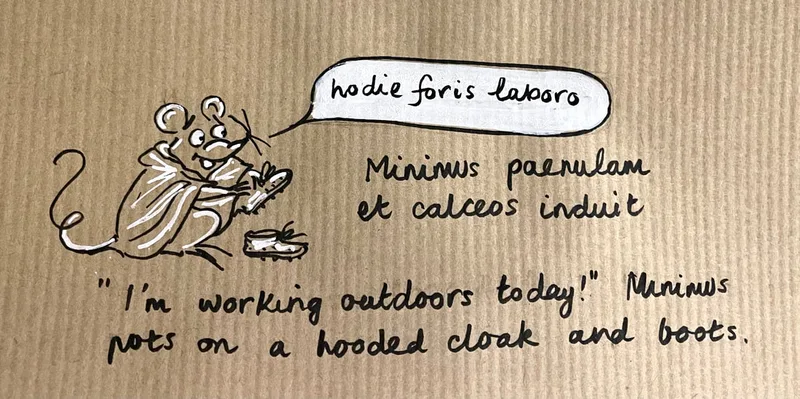 hodie foris laboro
Minimus paenulam
et calceos induit
"I'm working outdoors today!" Minimus
puts on a hooded cloak and boots.